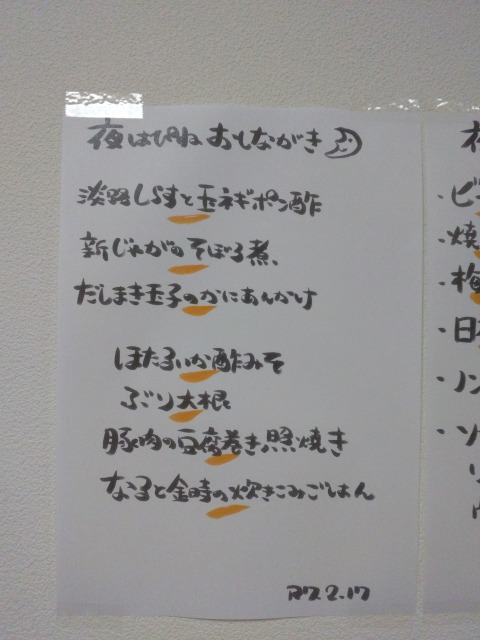 夜はぴね おしながき
淡路しらすと玉ネギポン酢
新じゃがのそぼろ煮、
だしまき玉子のかにあんかけ
ほたるいか酢みそ
ぶり大根
豚肉の豆腐巻き照焼き
なると金時の炊きこみごはん
R7.2.17
・ビ
・焼
・梅
・日
・ノン
・ソ